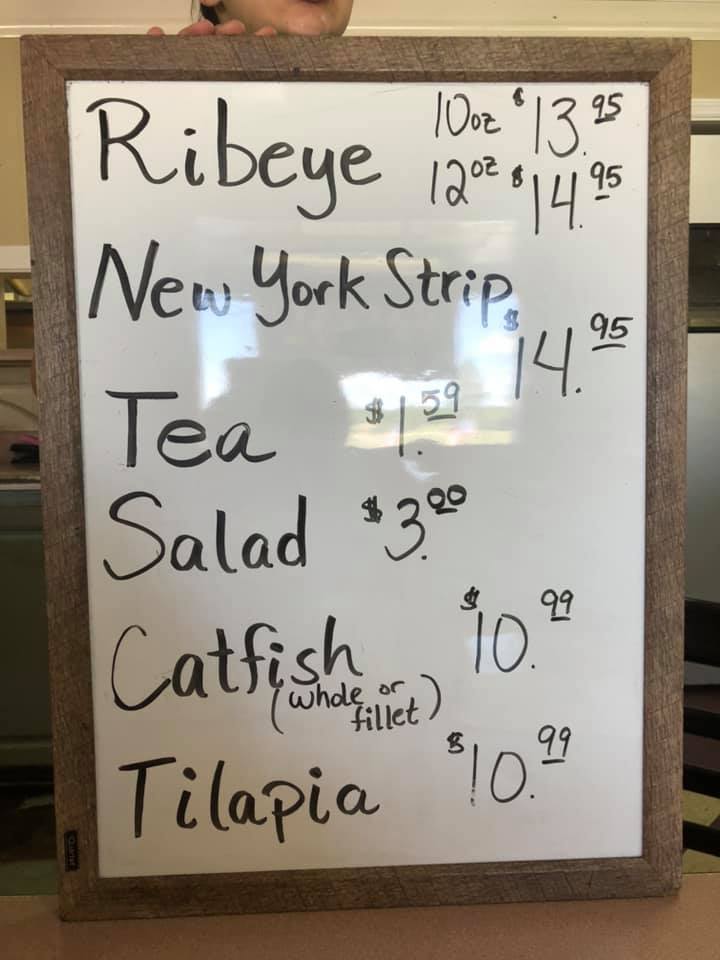 Ribeye 10oz $13.95
12oz $14.95
New York Strip
$14.95
Tea $1.59
Salad $3.00
Catfish $10.99
(whole or
fillet)
Tilapia $10.99
Quartet